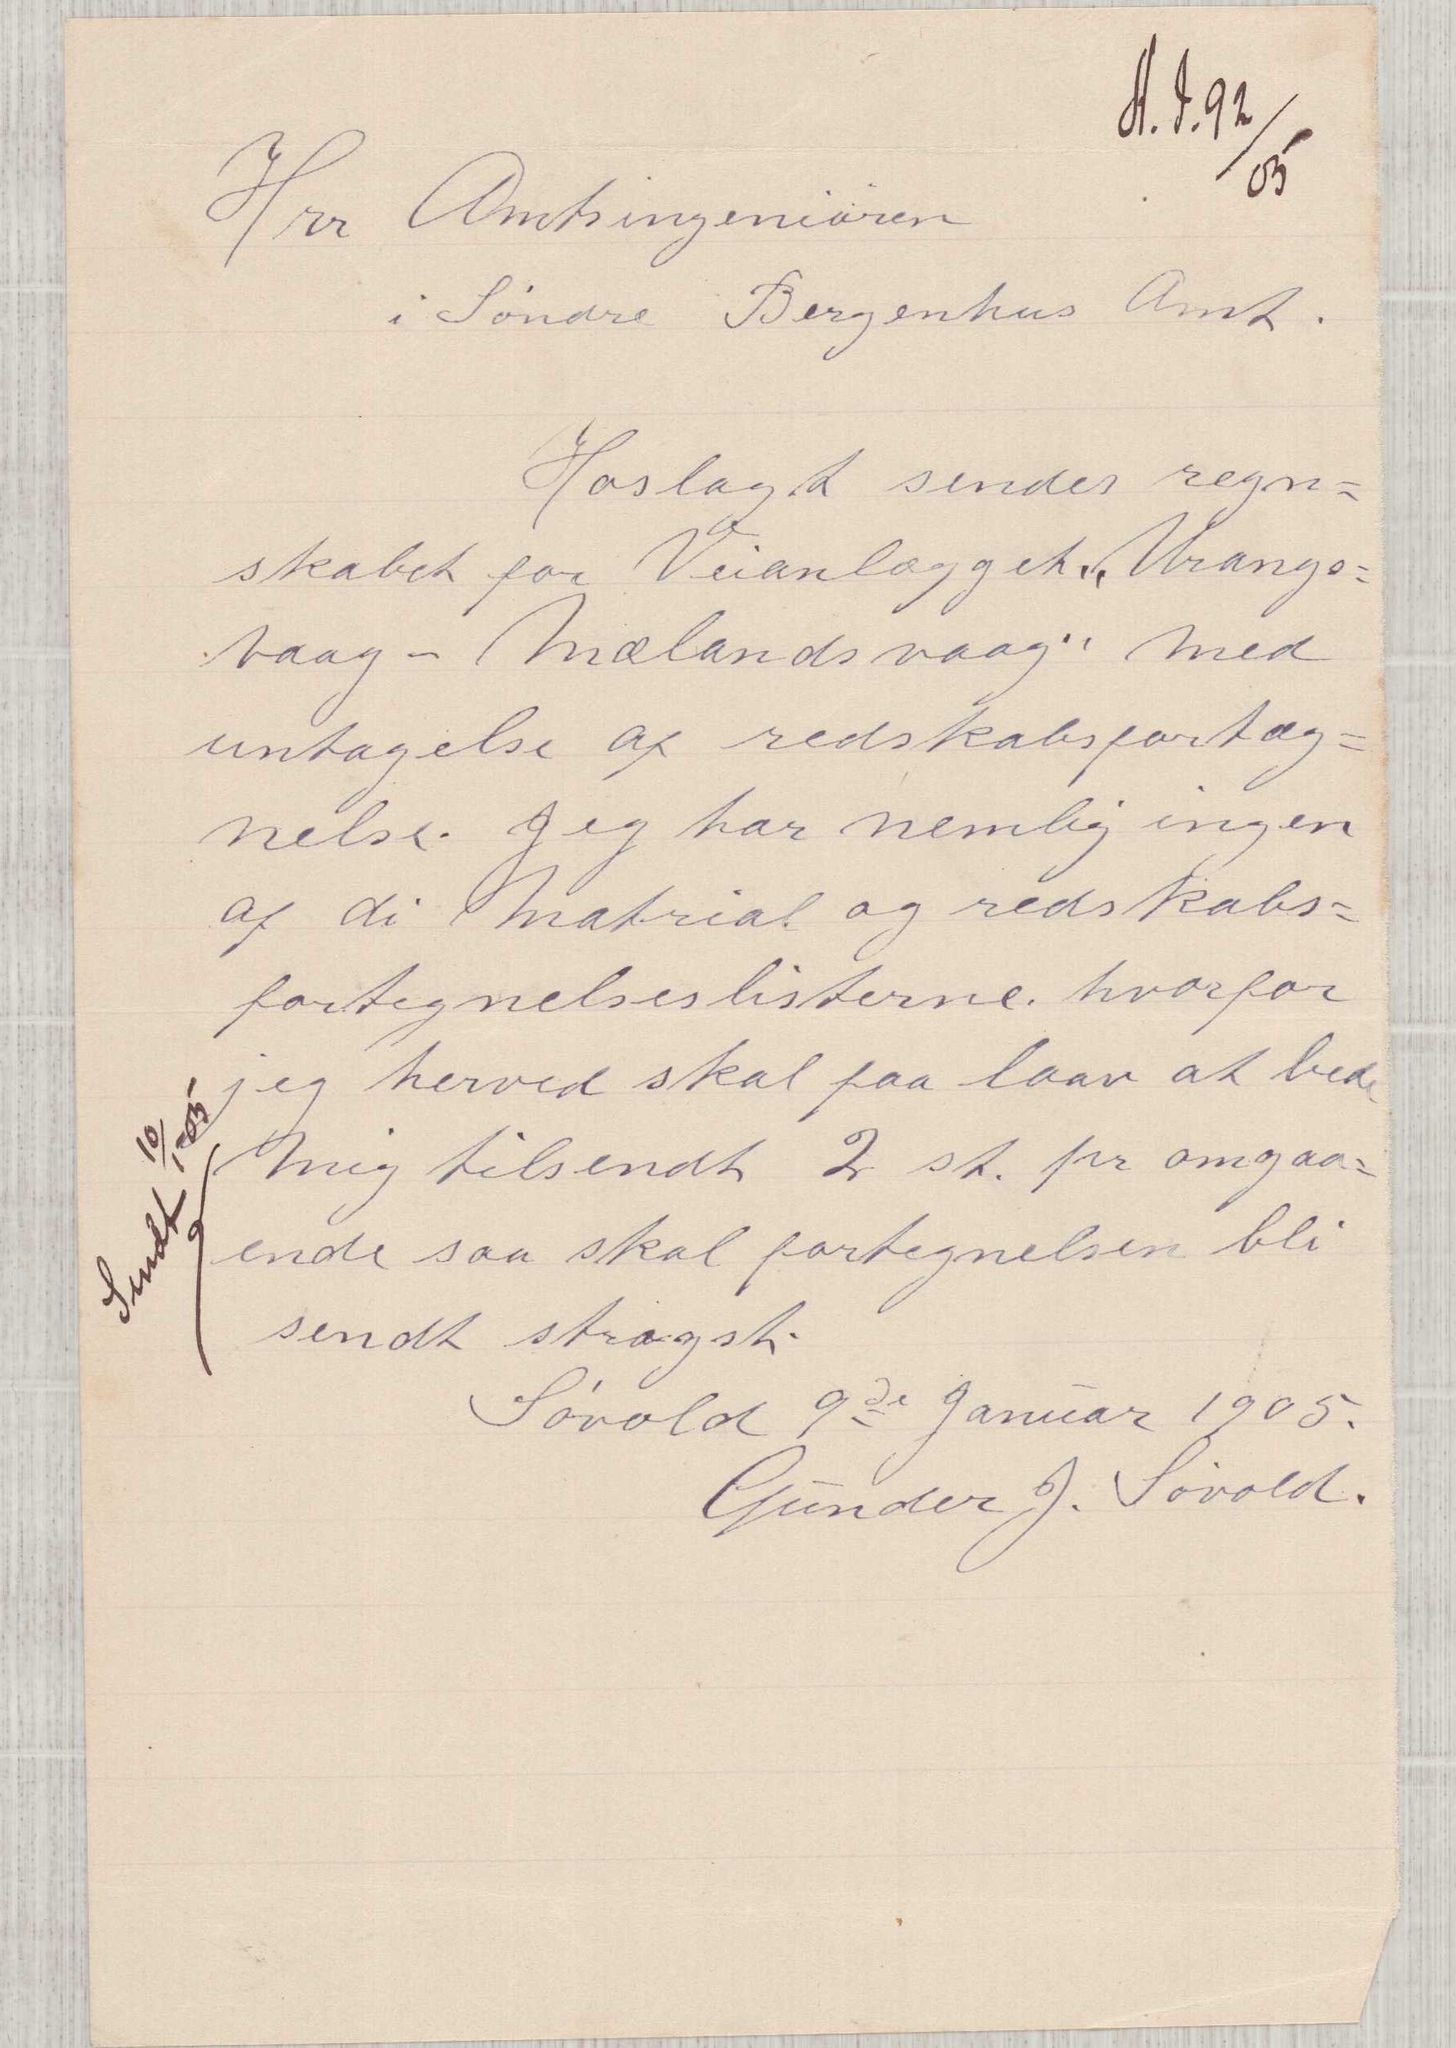 A. J. 92/05
Hrr Amtsingeniøren
i Søndre Bergenhus Amt.
Hoslagt sendes regn=
skabet for Veianlægget „Urangs=
vaag - Mælandsvaag" med
untagelse af redskabsfortæg=
nelse. Jeg har nemlig ingen
af di Matrial og redskabs=
fortegnelseslisterne. hvorfor
jeg herved skal faa laav at bede
mig tilsendt 2 st. pr omgaa=
ende saa skal fortegnelsen bli
sendt stragst.
Søvold 9de Januar 1905.
Gunder J. Søvold.
Sendt 10/1-05